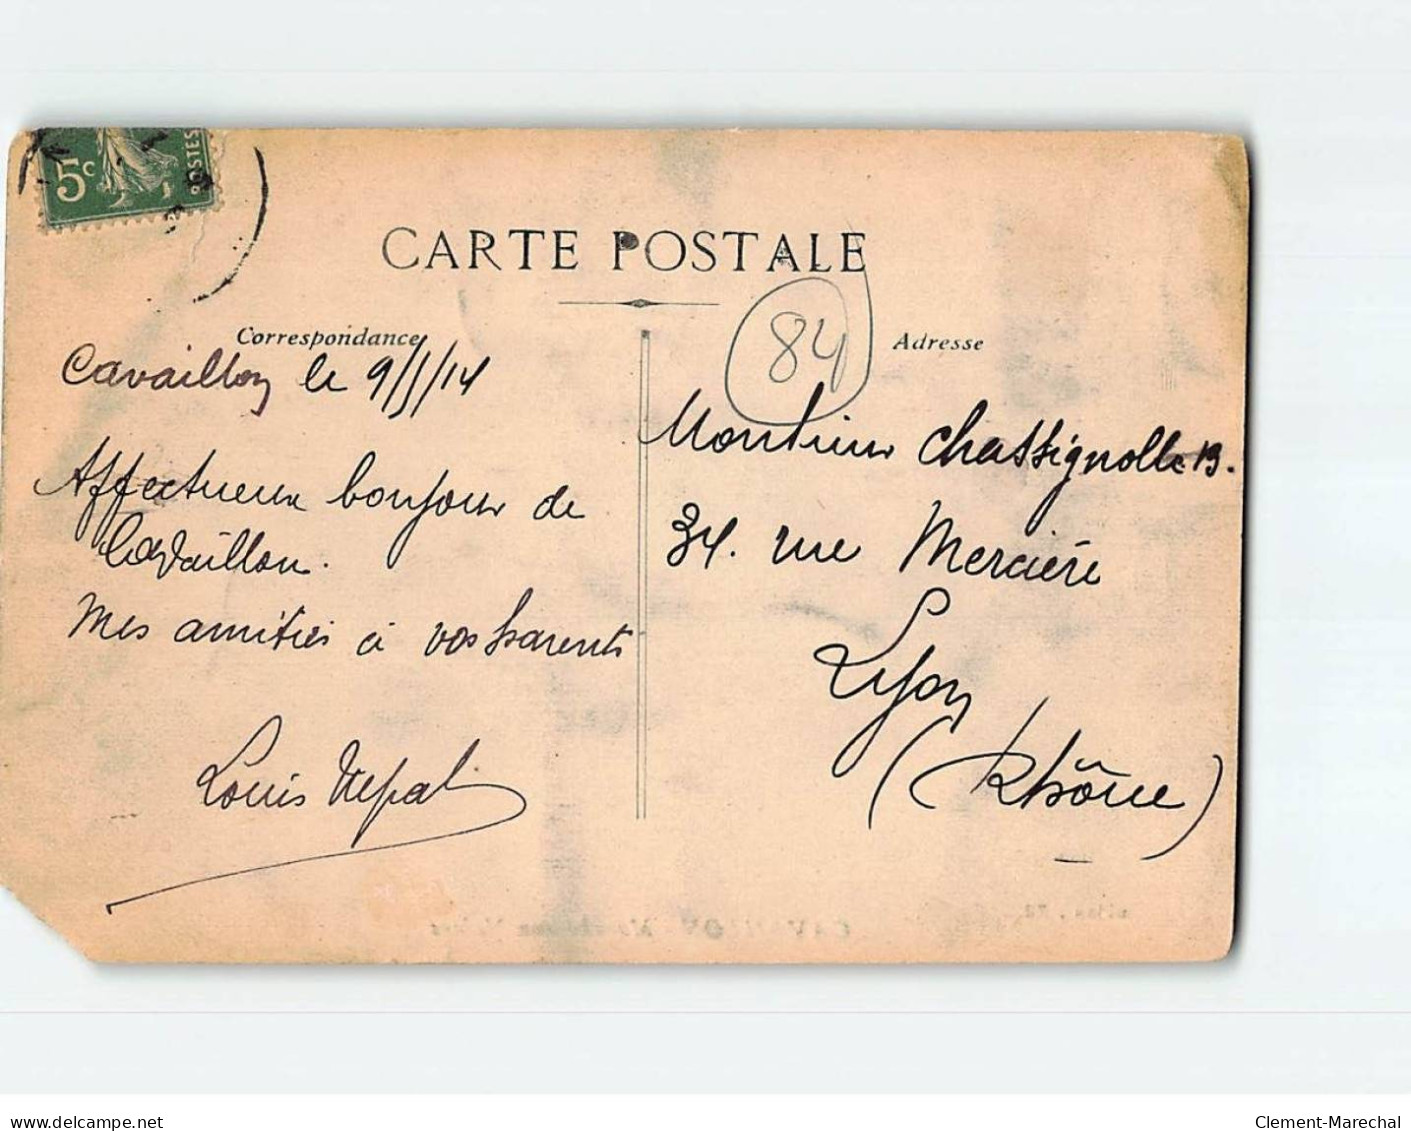 5c
POSTES
CARTE POSTALE
84
Correspondance
Adresse
Cavaillon le 9/5/14
Affectueux bonjour de
Cavaillon.
Mes amitiés à vos parents
Louis
Monsieur Chassignolle B.
34. rue Mercière
Lyon
(Rhône)
www.delcampe.net
Clement-Marechal